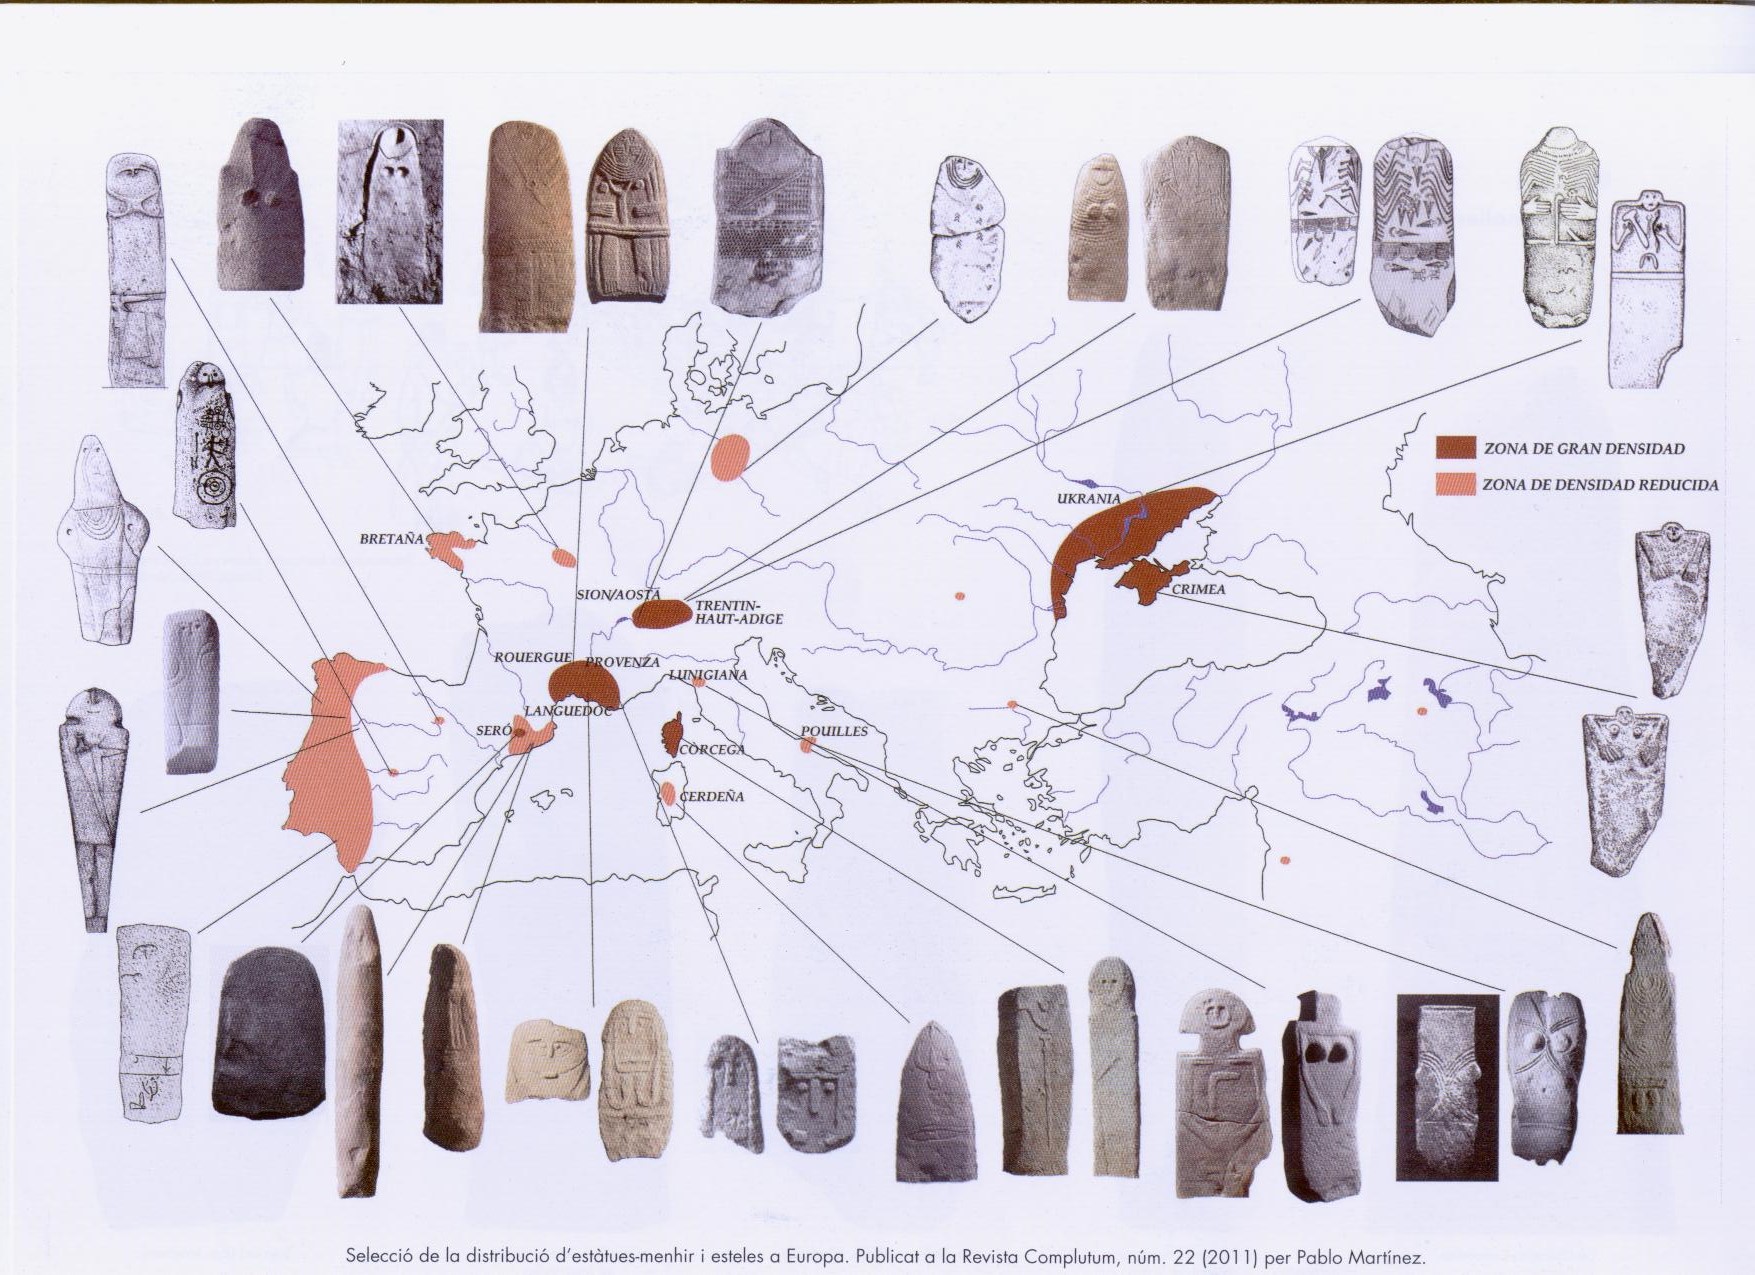 ZONA DE GRAN DENSIDAD
ZONA DE DENSIDAD REDUCIDA
UKRANIA
BRETAÑA
CRIMEA
SION/AOSTA
TRENTIN-
HAUT-ADIGE
ROUERGUE
PROVENZA
LUNIGIANA
LANGUEDOC
SERÓ
POUILLES
CÓRCEGA
CERDEÑA
Selecció de la distribució d'estàtues-menhir i esteles a Europa. Publicat a la Revista Complutum, núm. 22 (2011) per Pablo Martínez.